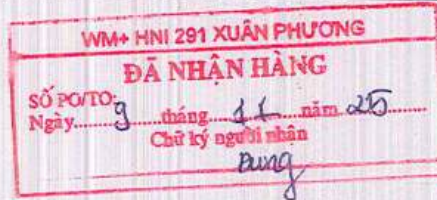 WM+ HNI 291 XUÂN PHƯƠNG
ĐÃ NHẬN HÀNG
SỐ PO/TO:
Ngày......9......tháng......11......năm 25......
Chữ ký người nhận
Dung